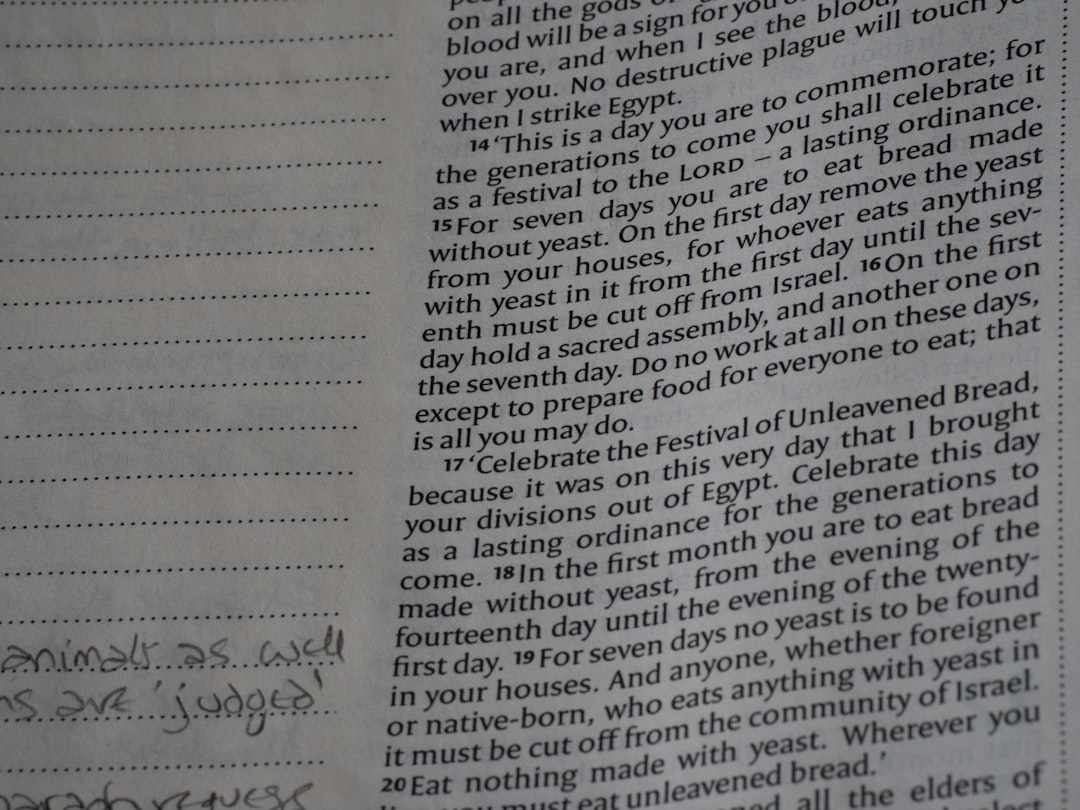 on all the gods
blood will be a sign for you
you are, and when I see the blood,
over you. No destructive plague will touch
when I strike Egypt.
14 ‘This is a day you are to commemorate; for
the generations to come you shall celebrate it
as a festival to the LORD – a lasting ordinance.
15 For seven days you are to eat bread made
without yeast. On the first day remove the yeast
from your houses, for whoever eats anything
with yeast in it from the first day until the sev-
enth must be cut off from Israel. 16 On the first
day hold a sacred assembly, and another one on
the seventh day. Do no work at all on these days,
except to prepare food for everyone to eat; that
is all you may do.
17 ‘Celebrate the Festival of Unleavened Bread,
because it was on this very day that I brought
your divisions out of Egypt. Celebrate this day
as a lasting ordinance for the generations to
come. 18 In the first month you are to eat bread
made without yeast, from the evening of the
fourteenth day until the evening of the twenty-
first day. 19 For seven days no yeast is to be found
in your houses. And anyone, whether foreigner
or native-born, who eats anything with yeast in
it must be cut off from the community of Israel.
20 Eat nothing made with yeast. Wherever you
must eat unleavened bread.’
all the elders of
animals as well
are 'judged'